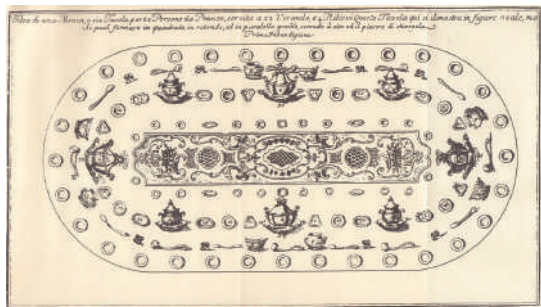 Idea di una Mensa, o sia Tavola per 20 Persone da Pranzo, servita a 22 Vivande, e 4. Rilievi Questa Tavola qui si dimostra in figura ovale, ma
si può formare in quadrato, in rotondo, ed in paralello grammo, secondo il sito ed il piacere di chi
Prima Imbandigione